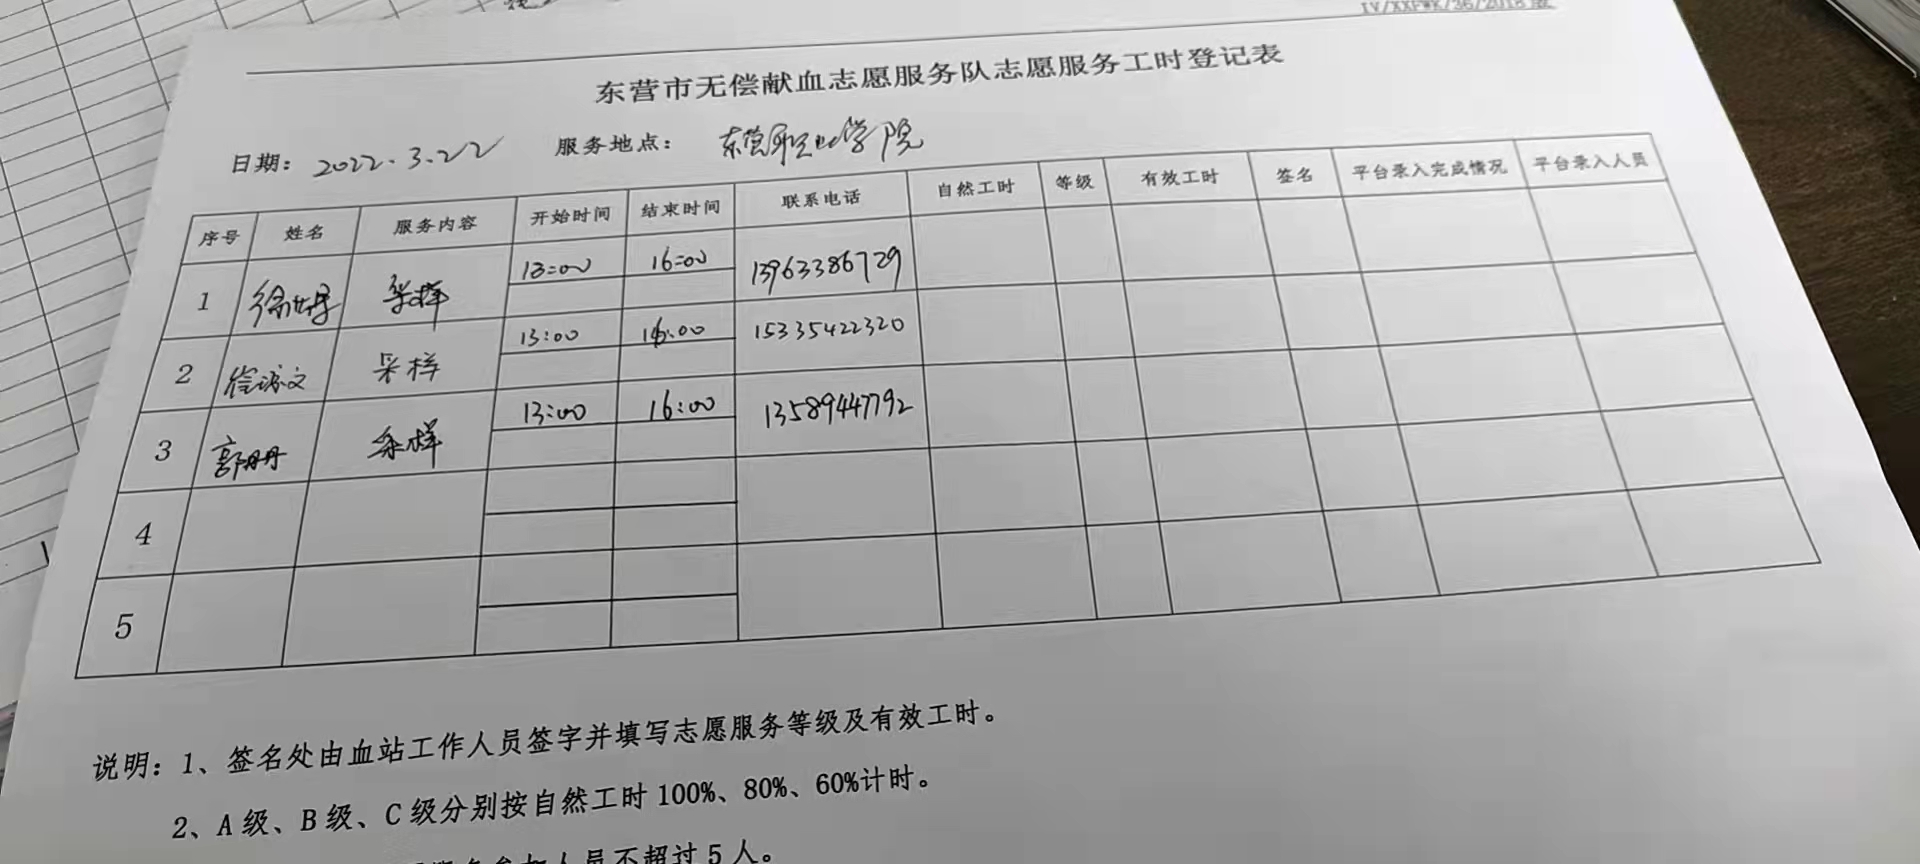 IV/XXFWK/36/2018版
东营市无偿献血志愿服务队志愿服务工时登记表
日期：2022.3.22 服务地点：东营职业学院
序号 姓名 服务内容 开始时间 结束时间 联系电话 自然工时 等级 有效工时 签名 平台录入完成情况 平台录入人员
1 采样 13:00 16:00 13963386729
2 采样 13:00 16:00 15335422320
3 郭丹丹 采样 13:00 16:00 13589447792
4
5
说明：1、签名处由血站工作人员签字并填写志愿服务等级及有效工时。
2、A级、B级、C级分别按自然工时100%、80%、60%计时。
服务参加人员不超过5人。